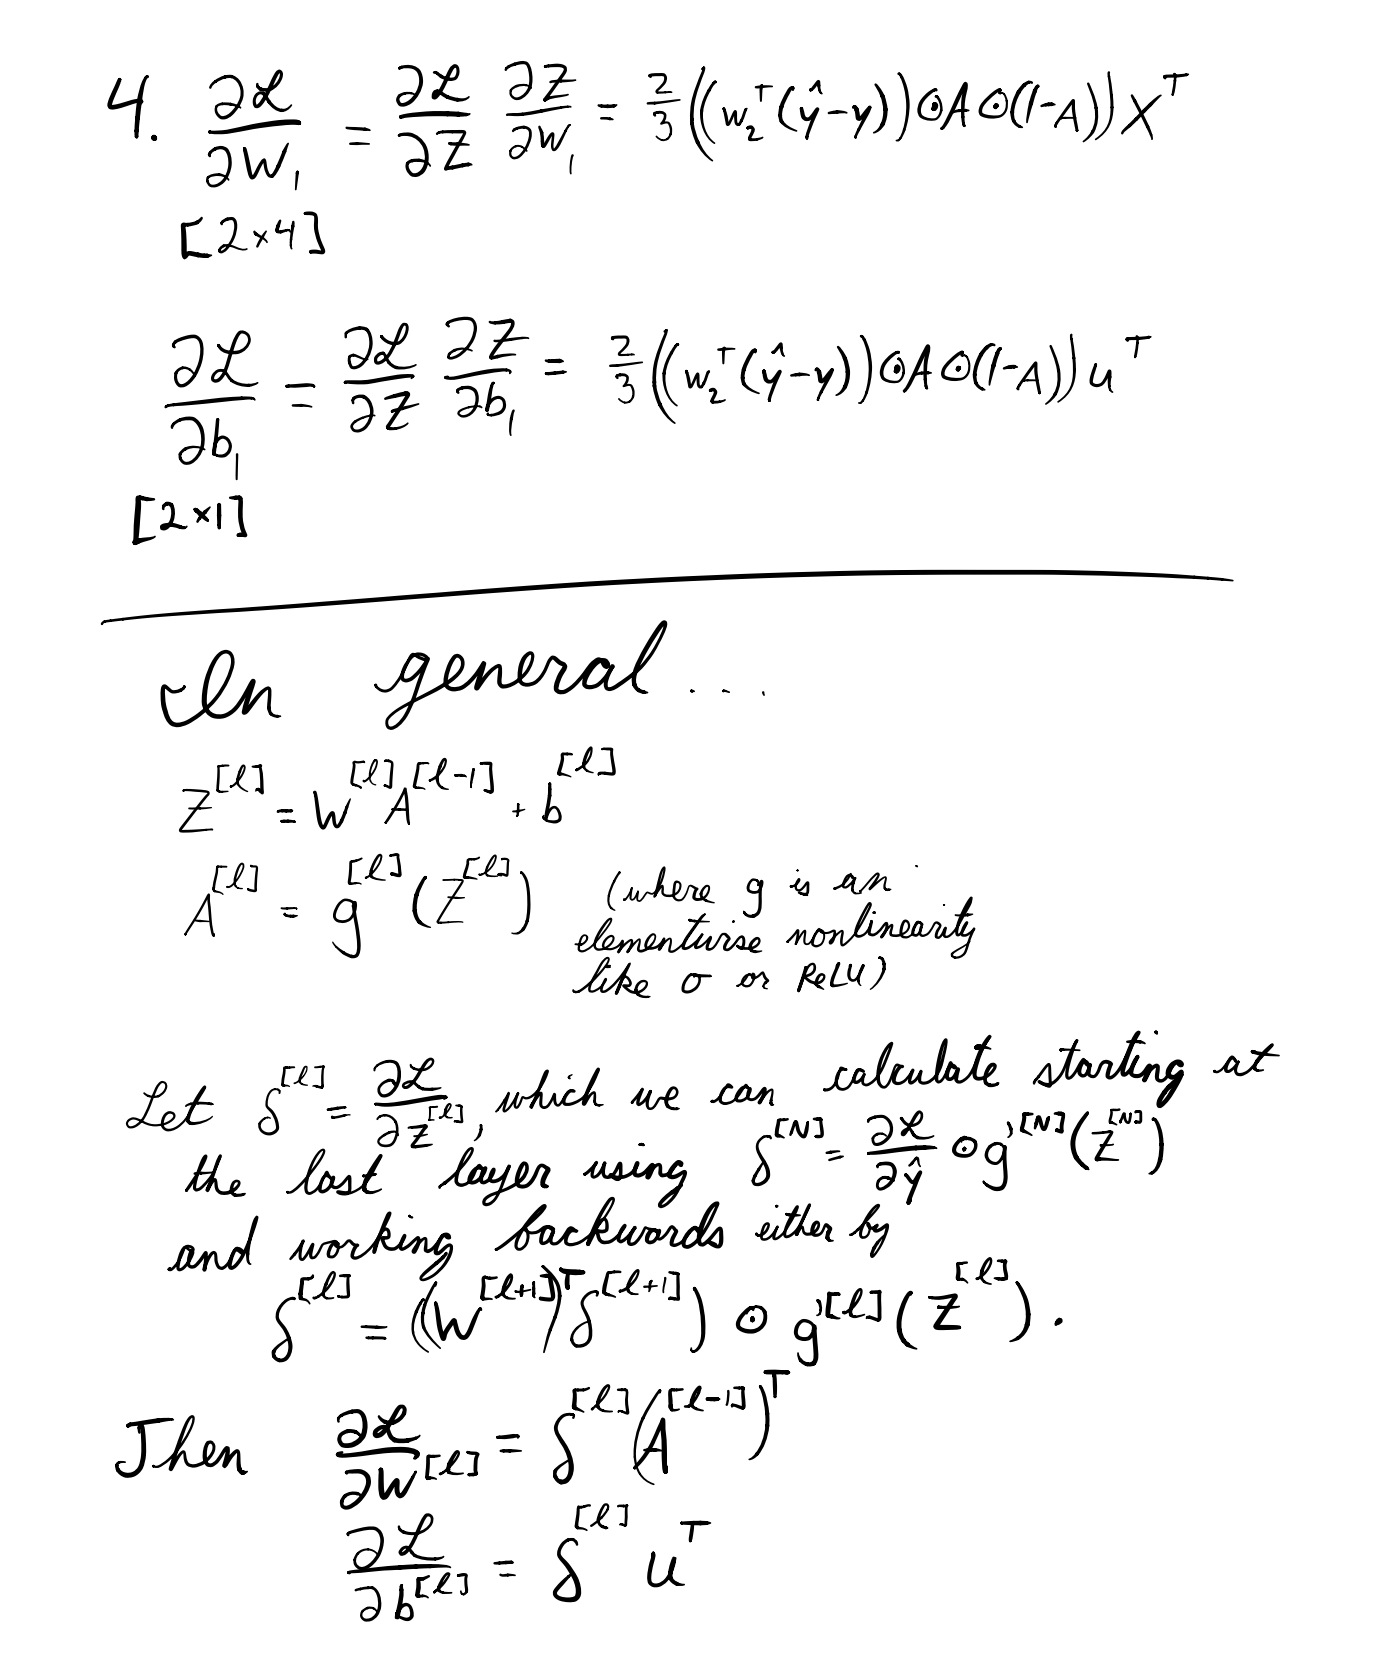 4. ∂ℒ/∂W₁ = ∂ℒ/∂Z ∂Z/∂W₁ = 2/3((w₂ᵀ(ŷ-y))⊙A⊙(1-A))Xᵀ
[2×4]
∂ℒ/∂b₁ = ∂ℒ/∂Z ∂Z/∂b₁ = 2/3((w₂ᵀ(ŷ-y))⊙A⊙(1-A))uᵀ
[2×1]
In general ....
Z^[ℓ] = W^[ℓ] A^[ℓ-1] + b^[ℓ]
A^[ℓ] = g^[ℓ](Z^[ℓ]) (where g is an
elementwise nonlinearity
like σ or ReLU)
Let δ^[ℓ] = ∂ℒ/∂Z^[ℓ], which we can calculate starting at
the last layer using δ^[N] = ∂ℒ/∂ŷ ⊙ g'^[N](Z^[N])
and working backwards either by
δ^[ℓ] = ((W^[ℓ+1])ᵀ δ^[ℓ+1]) ⊙ g'^[ℓ](Z^[ℓ]).
Then ∂ℒ/∂W^[ℓ] = δ^[ℓ](A^[ℓ-1])ᵀ
∂ℒ/∂b^[ℓ] = δ^[ℓ] uᵀ